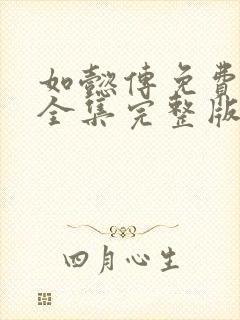 如懿傳免費
全集完整版
四月心生